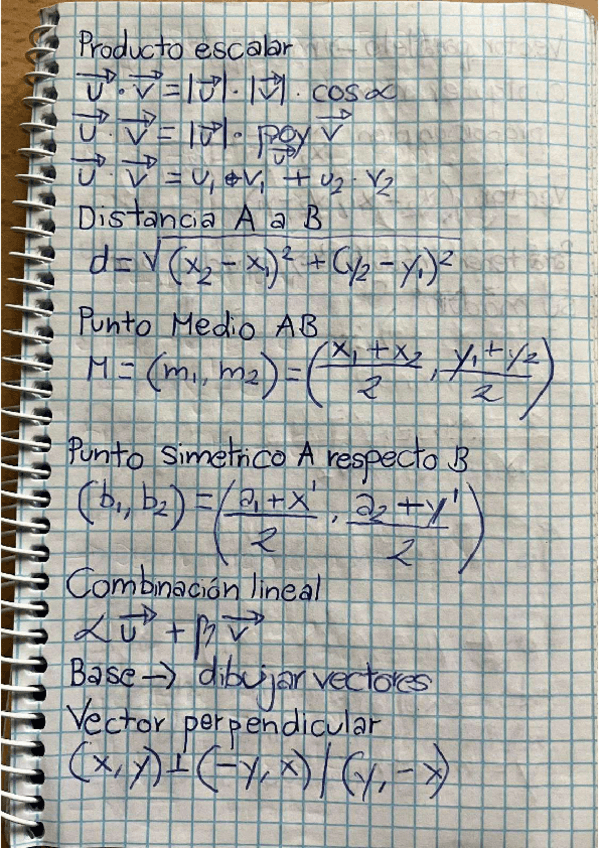 Producto escalar
u⃗ · v⃗ = |u⃗| · |v⃗| · cos α
u⃗ · v⃗ = |u⃗| · proy_u⃗ v⃗
u⃗ · v⃗ = u₁ · v₁ + u₂ · v₂
Distancia A a B
d = √(x₂ - x₁)² + (y₂ - y₁)²
Punto Medio AB
M = (m₁, m₂) = ((x₁ + x₂)/2, (y₁ + y₂)/2)
Punto simetrico A respecto B
(b₁, b₂) = ((a₁ + x')/2, (a₂ + y')/2)
Combinación lineal
α u⃗ + β v⃗
Base → dibujar vectores
Vector perpendicular
(x, y) ⊥ (-y, x) / (y, -x)